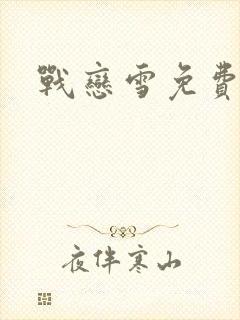 戰戀雪免費
夜伴寒山